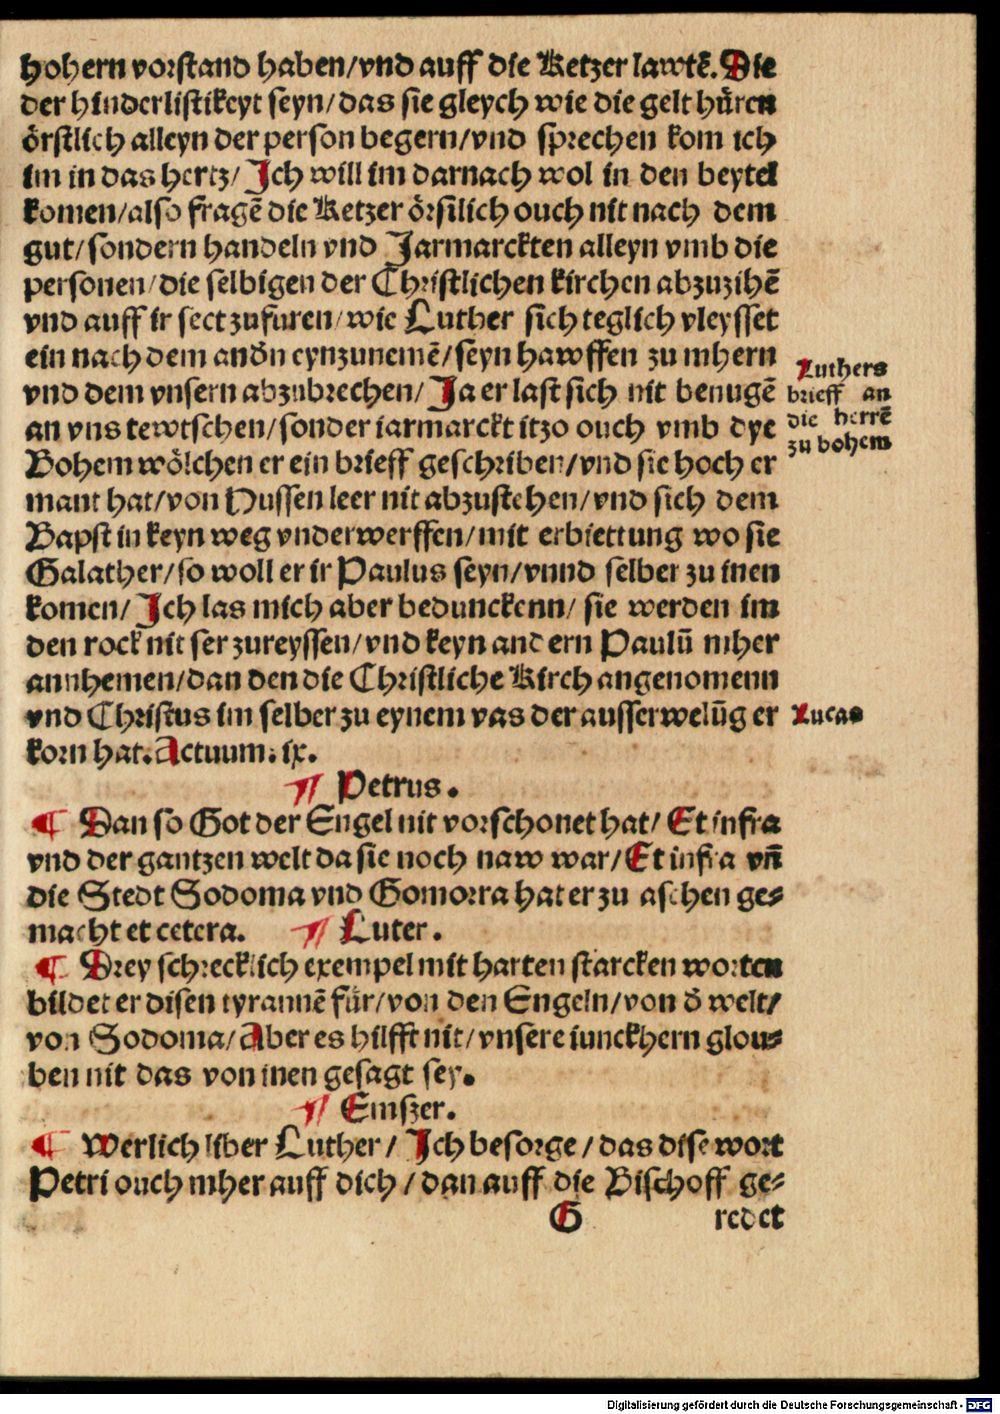 hohern vorstand haben/vnd auff die Ketzer lawtẽ. Die
der hinderlistikeyt seyn/das sie gleych wie die gelt hüren
örstlich alleyn der person begern/vnd sprechen kom ich
im in das hertz/ Ich will im darnach wol in den beytel
komen/also fragẽ die Ketzer örstlich ouch nit nach dem
gut/sondern handeln vnd Jarmarckten alleyn vmb die
personen/die selbigen der Christlichen kirchen abzuzihẽ
vnd auff ir sect zufuren/wie Luther sich teglich vleysset
ein nach dem andn̄ eynzunemẽ/seyn hawffen zu mhern
vnd dem vnsern abzubrechen/ Ja er last sich nit benugẽ
an vns tewtschen/sonder iarmarckt itzo ouch vmb dye
Bohem wölchen er ein brieff geschriben/vnd sie hoch er
mant hat/von Hussen leer nit abzustehen/vnd sich dem
Bapst in keyn weg vnderwerffen/mit erbiettung wo sie
Galather/so woll er ir Paulus seyn/vnnd selber zu inen
komen/ Ich las mich aber bedunckenn/ sie werden im
den rock nit ser zureyssen/vnd keyn andern Paulū mher
annhemen/dan den die Christliche Kirch angenomenn
vnd Christus im selber zu eynem vas der ausserwelūg er
korn hat. Actuum. ix.
Luthers
brieff an
die herrẽ
zu bohem
Lucas
¶ Petrus.
¶ Dan so Got der Engel nit vorschonet hat/ Et infra
vnd der gantzen welt da sie noch naw war/ Et infra vn̄
die Stedt Sodoma vnd Gomorra hat er zu aschen ge⸗
macht et cetera. ¶ Luter.
¶ Drey schrecklich exempel mit harten starcken worten
bildet er disen tyrannẽ für/von den Engeln/von d̄ welt/
von Sodoma/ Aber es hilfft nit/vnsere iunckhern glou⸗
ben nit das von inen gesagt sey.
¶ Emszer.
¶ Werlich liber Luther/ Ich besorge/das dise wort
Petri ouch mher auff dich/dan auff die Bischoff ge⸗
G redet
Digitalisierung gefördert durch die Deutsche Forschungsgemeinschaft - DFG